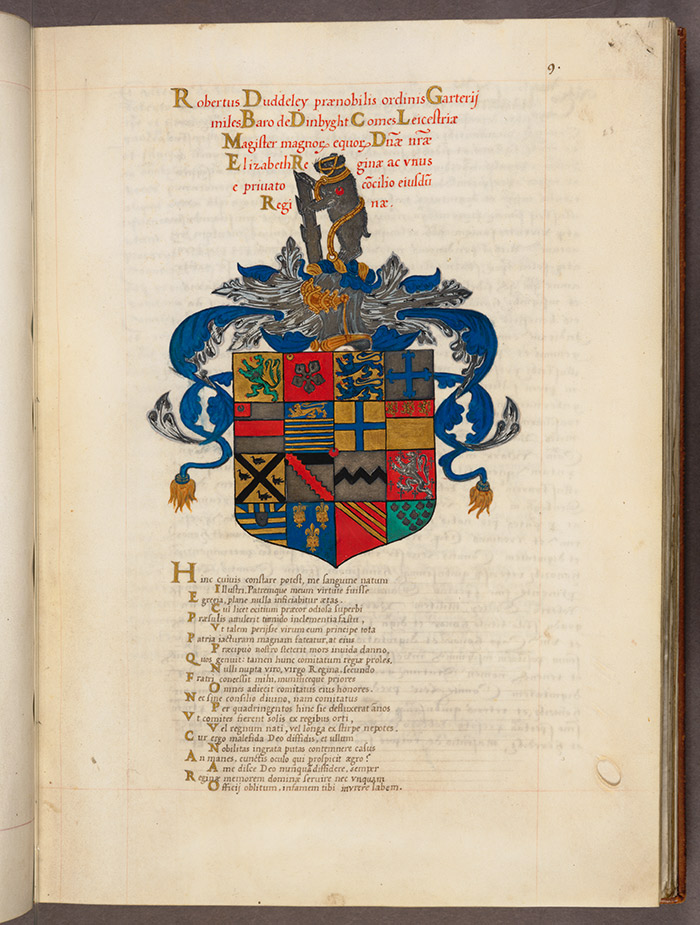 9.
Robertus Duddeley prænobilis ordinis Garterij
miles Baro de Dinbyght Comes Leicestriæ
Magister magnoꝝ equoꝝ Dn̄æ nr̄æ
Elizabeth Reginæ ac vnus
e priuato cōcilio eiusdū
Reginæ.
Hinc cuiuis constare potest, me sanguine natum
Illustri, Patremque meum virtute fuisse
Egregia, plane nulla inficiabitur ætas.
Cui licet exitium præcox odiosa superbi
Præsulis auulerit timido inclementia fastu,
Vt talem perijsse virum cum principe tota
Patria iacturam magnam fateatur, ac eius
Præcipuo nostro steterit mors inuida damno,
Quos genuit: tamen hunc comitatum regia proles,
Nulli nupta viro, virgo Regina, secundo
Fratri concessit mihi, munificeque priores
Omnes adiecit comitatus eius honores.
Nec sine consilio diuino, nam comitatus
Per quadringentos hinc sic defluxerat años
Vt comites fierent solis ex regibus orti,
Vel regnum nati, vel longa ex stirpe nepotes.
Cur ergo malefida Deo diffidis, et ullum
Nobilitas ingrata putas contemnere casus
An manes, cunctis oculo qui prospicit ægro?
A me disce Deo nunquā diffidere, semper
Reginæ memorem dominæ seruire nec vnquam
Officij oblitum, infamem tibi inurere labem.